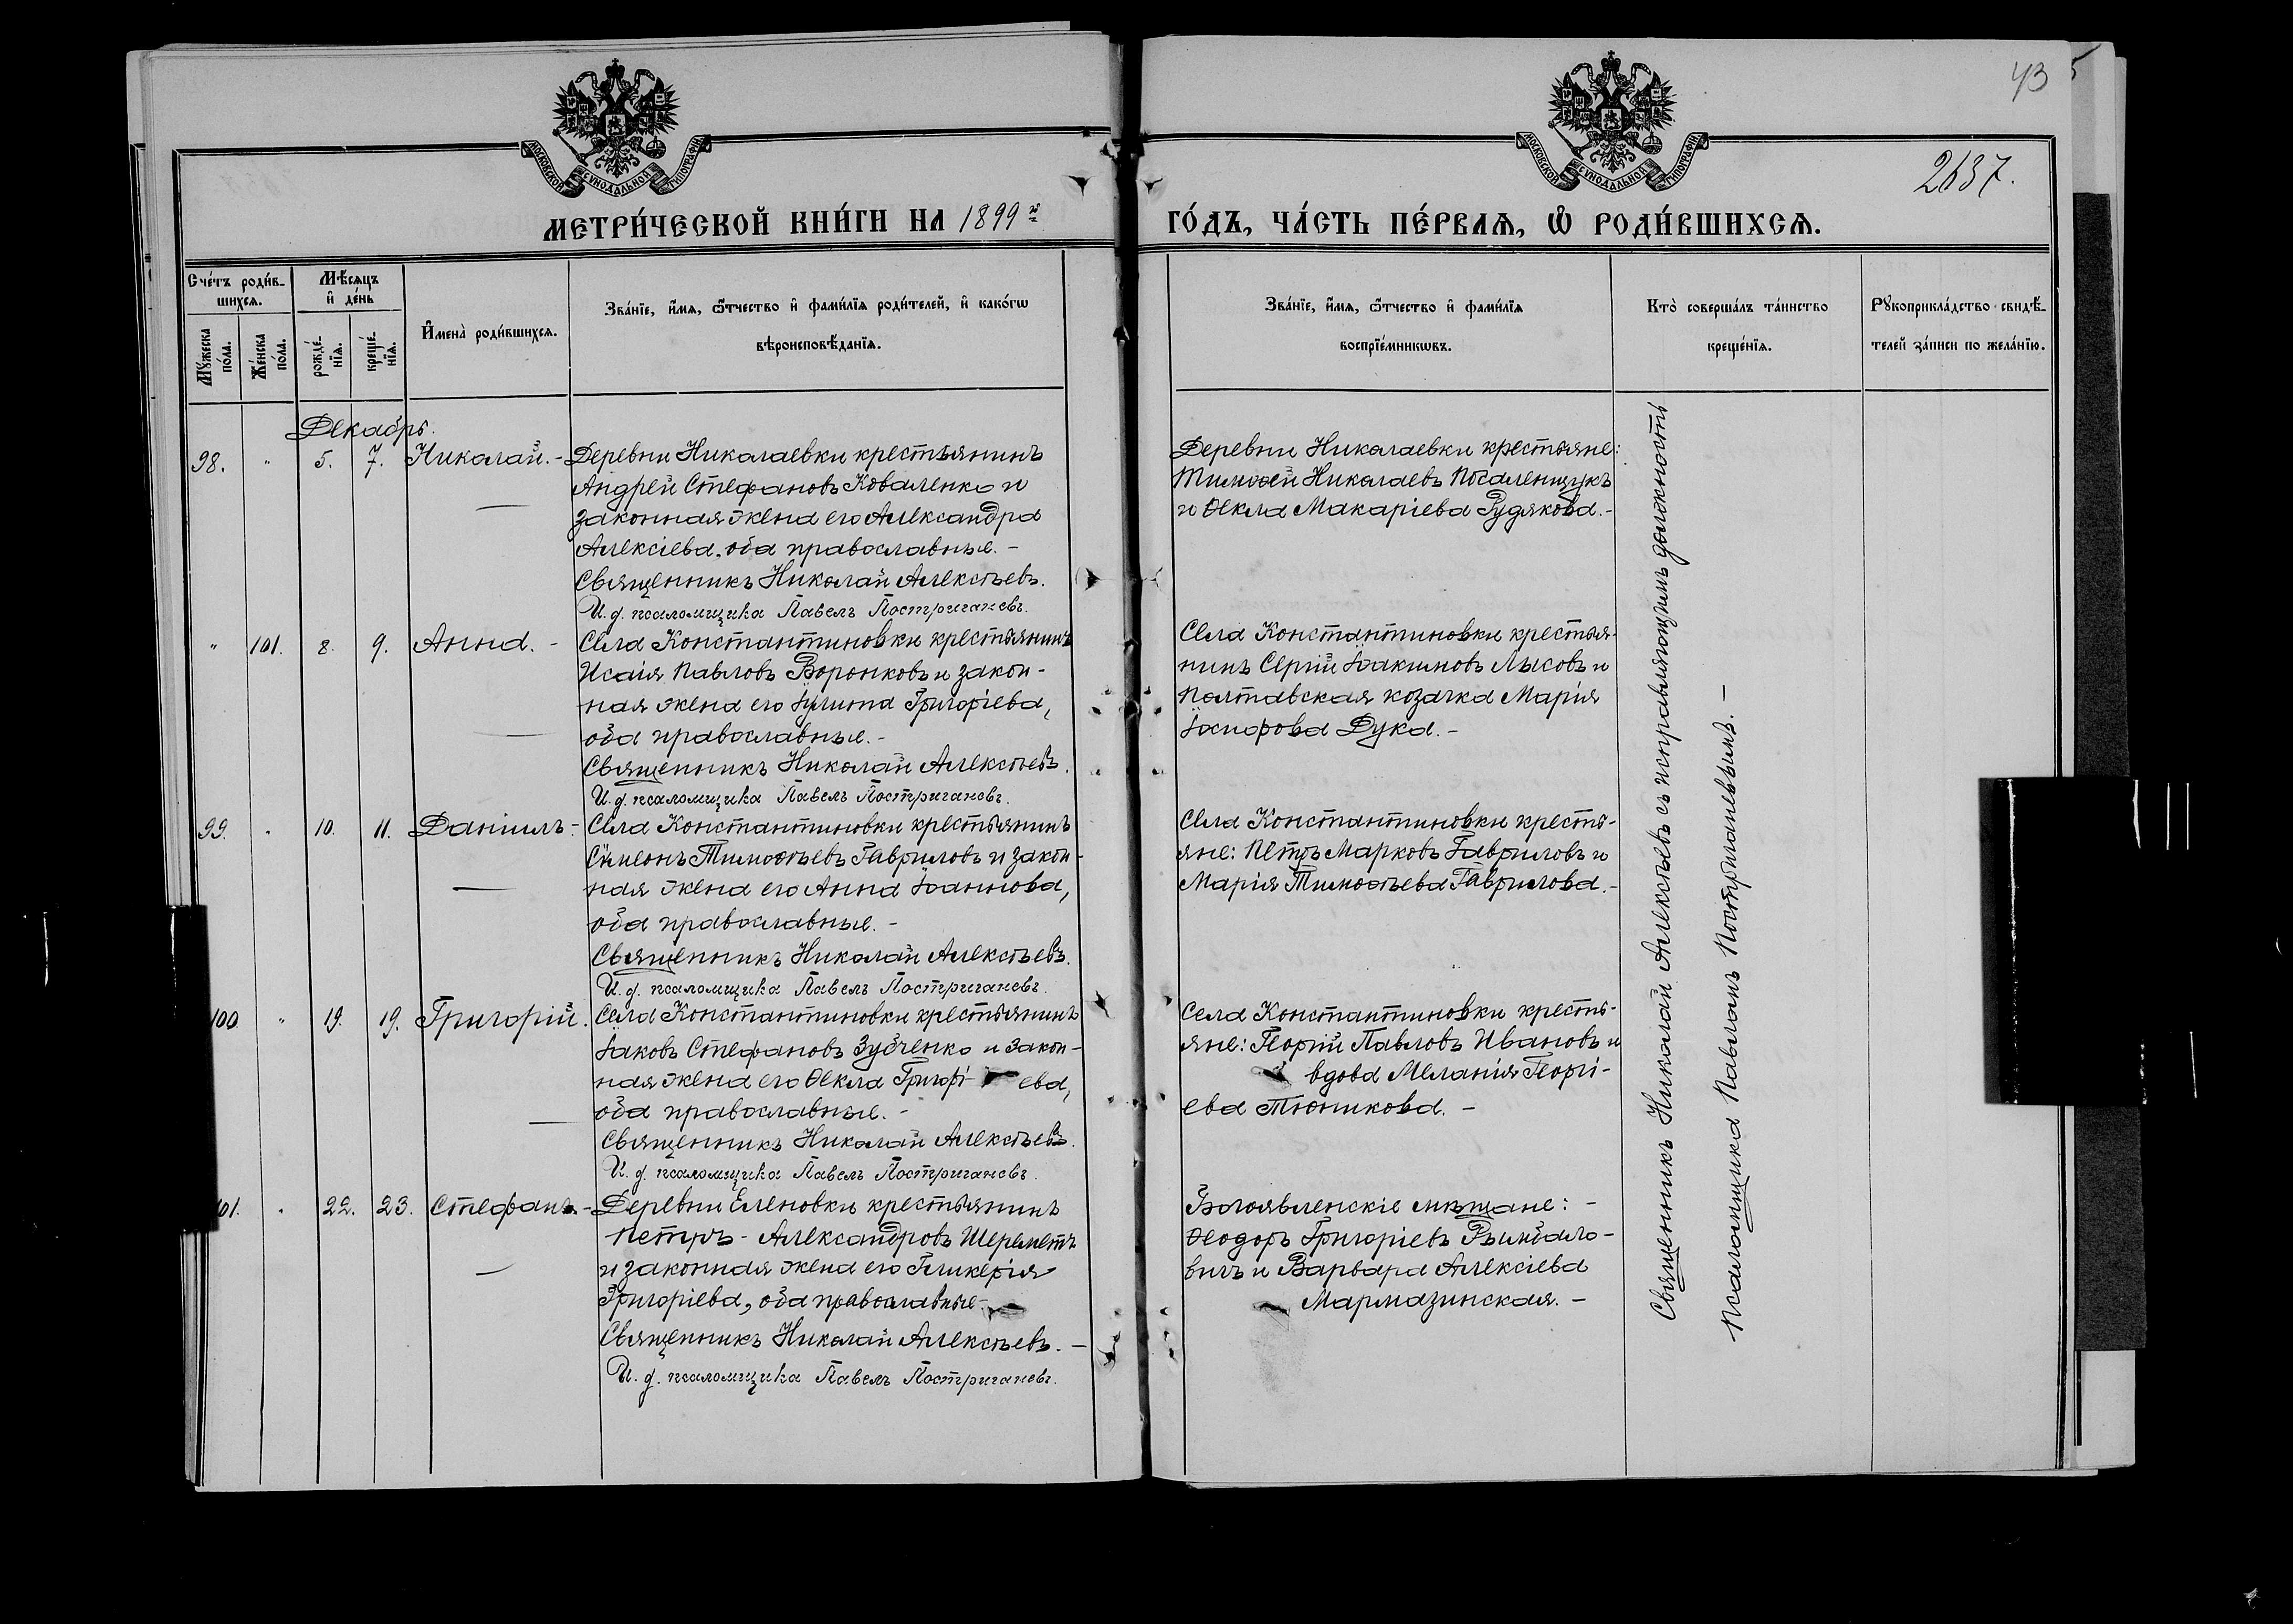 43
2637.
МОСКОВСКОЙ СУНОДАЛЬНОЙ ТИПОГРАФІИ
МОСКОВСКОЙ СУНОДАЛЬНОЙ ТИПОГРАФІИ
МЕТРИ́ЧЕСКОЙ КНИ́ГИ НА 1899й
ГО́ДЪ, ЧА́СТЬ ПЕ́РВАѦ, Ѡ РОДИ́ВШИХСѦ.
Сче́тъ роди́в-
шихсѧ.
Мѣ́сѧцъ
и҆ де́нь
Мꙋ́жеска
по́ла.
Же́нска
по́ла.
рожде́-
нїѧ.
креще́-
нїѧ.
И҆мена̀ роди́вшихсѧ.
Зва́нїе, и҆́мѧ, ѻ҆́тчество и҆ фами́лїѧ роди́телей, и҆ како́гѡ
вѣроисповѣ́данїѧ.
Зва́нїе, и҆́мѧ, ѻ҆́тчество и҆ фами́лїѧ
воспрїе́мникѡвъ.
Кто̀ соверша́лъ та́инство
креще́нїѧ.
Рꙋкоприкла́дство свидѣ́-
телей за́писи по жела́нїю.
Декабрь.
98. " 5. 7. Николай. - Деревни Николаевки крестьянинъ
Андрей Стефановъ Коваленко и
законная жена его Александра
Алексіева, оба православные. -
Священникъ Николай Алексѣевъ.
И. д. псаломщика Павелъ Постригачевъ.
Деревни Николаевки крестьяне:
Тимоѳей Николаевъ Посаленщукъ
и Ѳекла Макаріева Гудякова. -
" 101. 8. 9. Анна. - Села Константиновки крестьянинъ
Исаія Павловъ Воронковъ и закон-
ная жена его Іулита Григоріева,
оба православные. -
Священникъ Николай Алексѣевъ.
И. д. псаломщика Павелъ Постригачевъ.
Села Константиновки крестья-
нинъ Сергій Іоакимовъ Лысовъ и
Полтавская козачка Марія
Іосифова Дука. -
99. " 10. 11. Даніилъ. - Села Константиновки крестьянинъ
Сѵмеонъ Тимоѳѣевъ Гавриловъ и закон-
ная жена его Анна Іоаннова,
оба православные. -
Священникъ Николай Алексѣевъ.
И. д. псаломщика Павелъ Постригачевъ.
Села Константиновки кресть-
яне: Петръ Марковъ Гавриловъ и
Марія Тимоѳѣева Гаврилова. -
100 " 19. 19. Григорій. Села Константиновки крестьянинъ
Іаковъ Стефановъ Зубченко и закон-
ная жена его Ѳекла Григорі ева,
оба православные. -
Священникъ Николай Алексѣевъ.
И. д. псаломщика Павелъ Постригачевъ.
Села Константиновки кресть-
яне: Георгій Павловъ Ивановъ и
вдова Меланія Георгі-
ева Тюникова. -
01. " 22. 23. Стефанъ. - Деревни Еленовки крестьянинъ
Петръ - Александровъ Шереметъ
и законная жена его Гликерія
Григоріева, оба православные. -
Священникъ Николай Алексѣевъ. -
И. д. псаломщика Павелъ Постригачевъ.
Богоявленскіе мѣщане: -
Ѳеодоръ Григоріевъ Рымбало-
вичъ и Варвара Алексіева
Мармазинская. -
Священникъ Николай Алексѣевъ съ исправляющимъ должность
псаломщика Павломъ Постригачевымъ. -